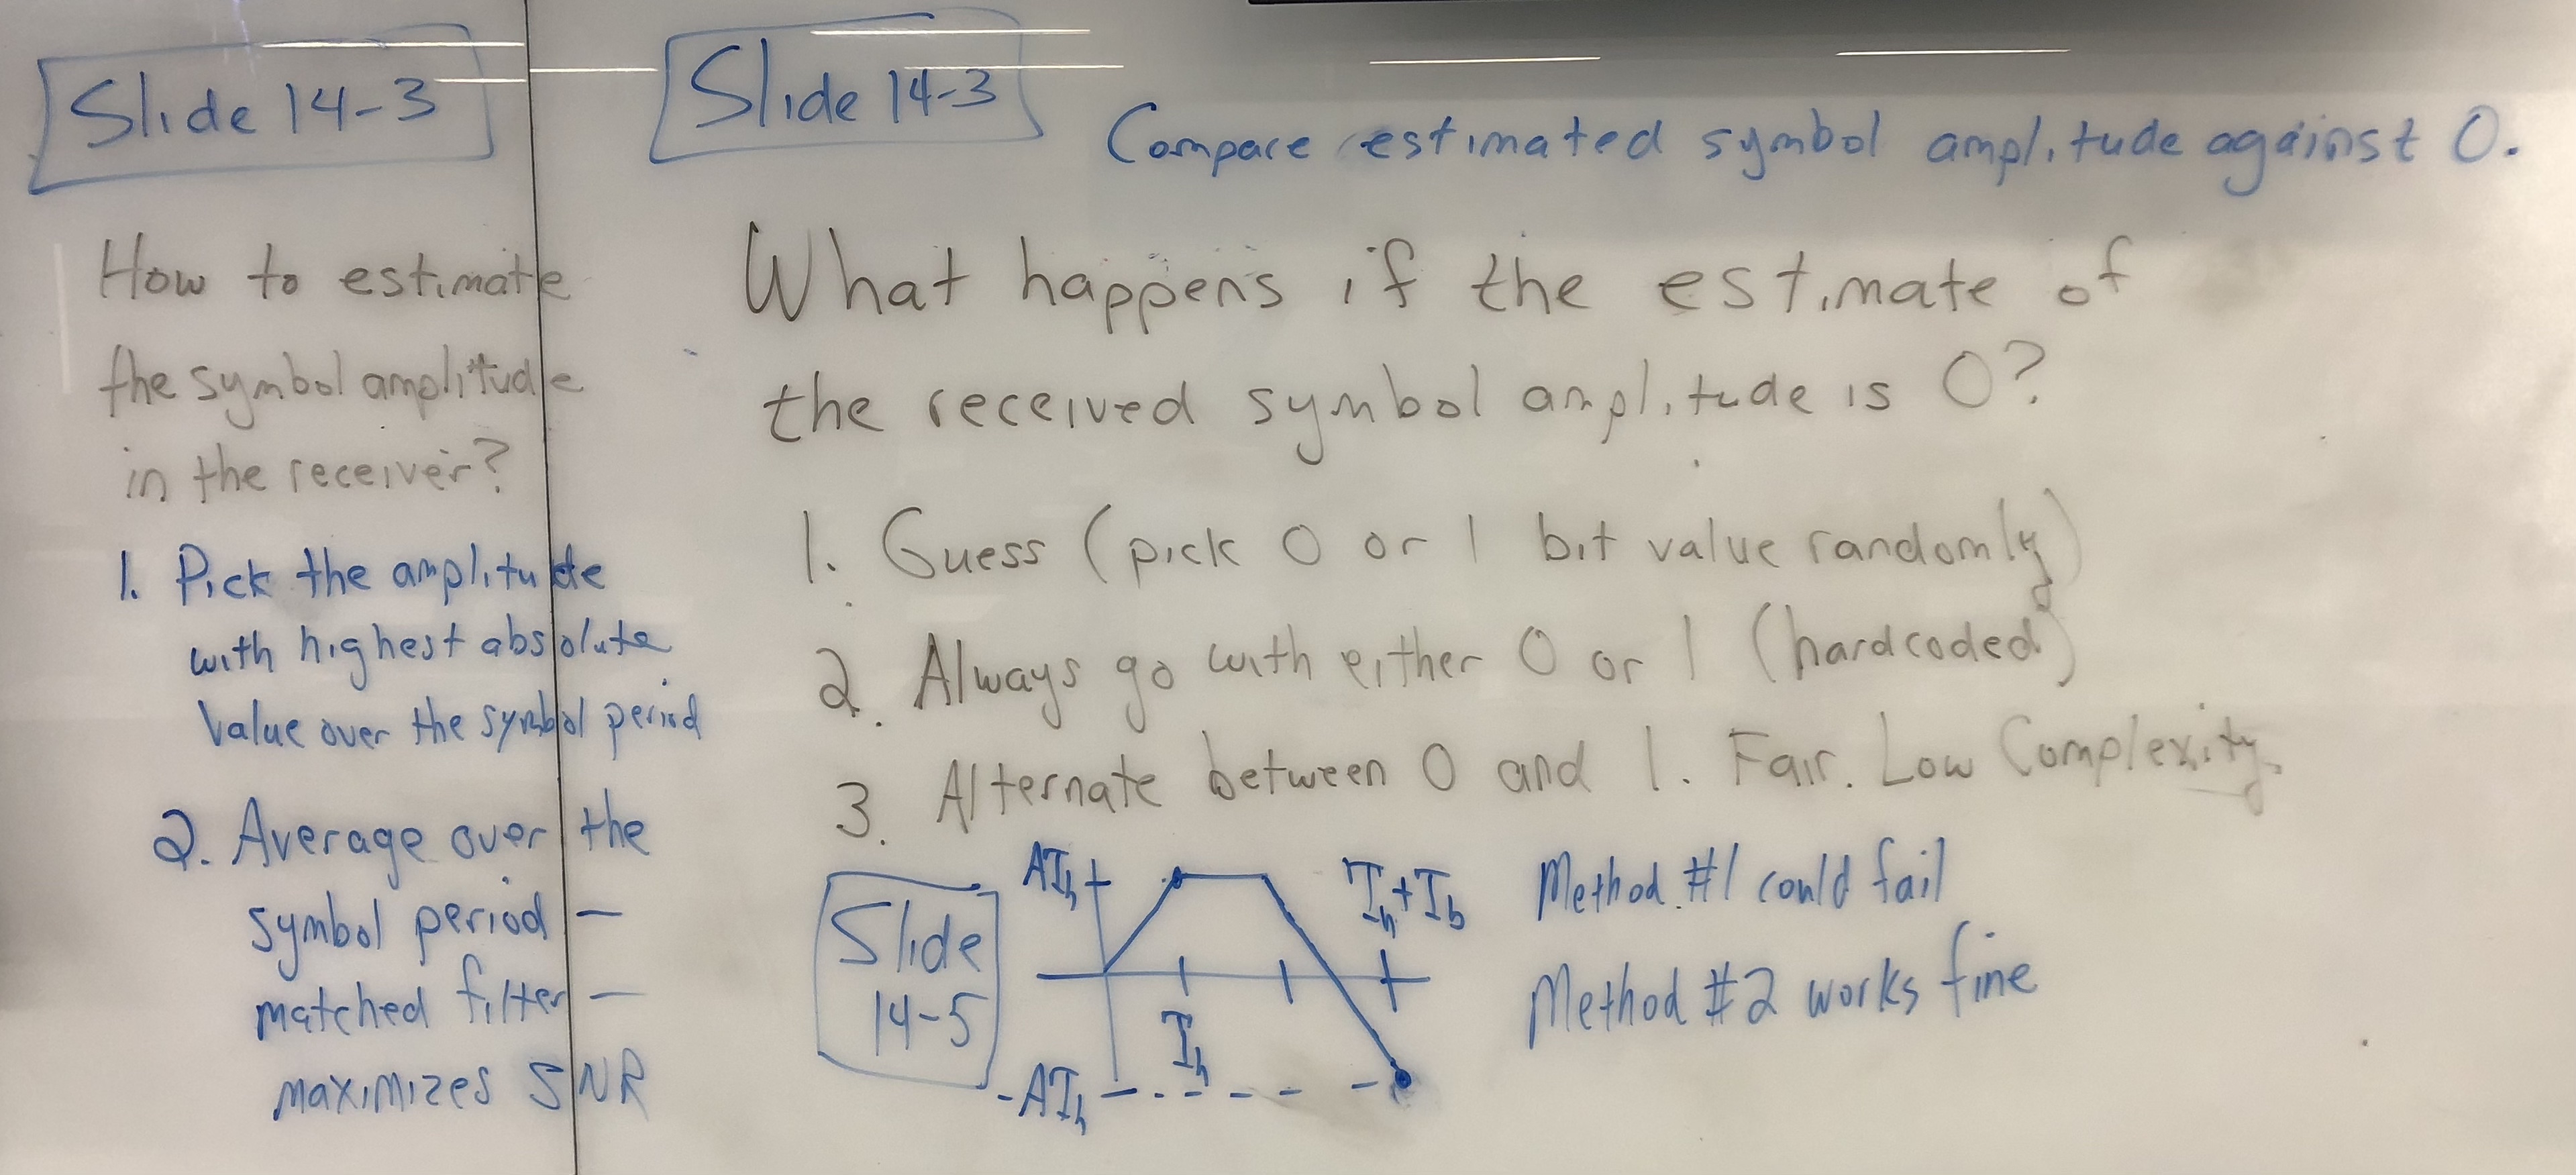 Slide 14-3
How to estimate
the symbol amplitude
in the receiver?
1. Pick the amplitude
with highest absolute
value over the symbol period
2. Average over the
symbol period –
matched filter –
maximizes SNR
Slide 14-3
Compare estimated symbol amplitude against 0.
What happens if the estimate of
the received symbol amplitude is 0?
1. Guess (pick 0 or 1 bit value randomly)
2. Always go with either 0 or 1 (hardcoded)
3. Alternate between 0 and 1. Fair. Low Complexity.
Slide
14-5
ATh
Th
Th+Tb
-ATh
Method #1 could fail
Method #2 works fine